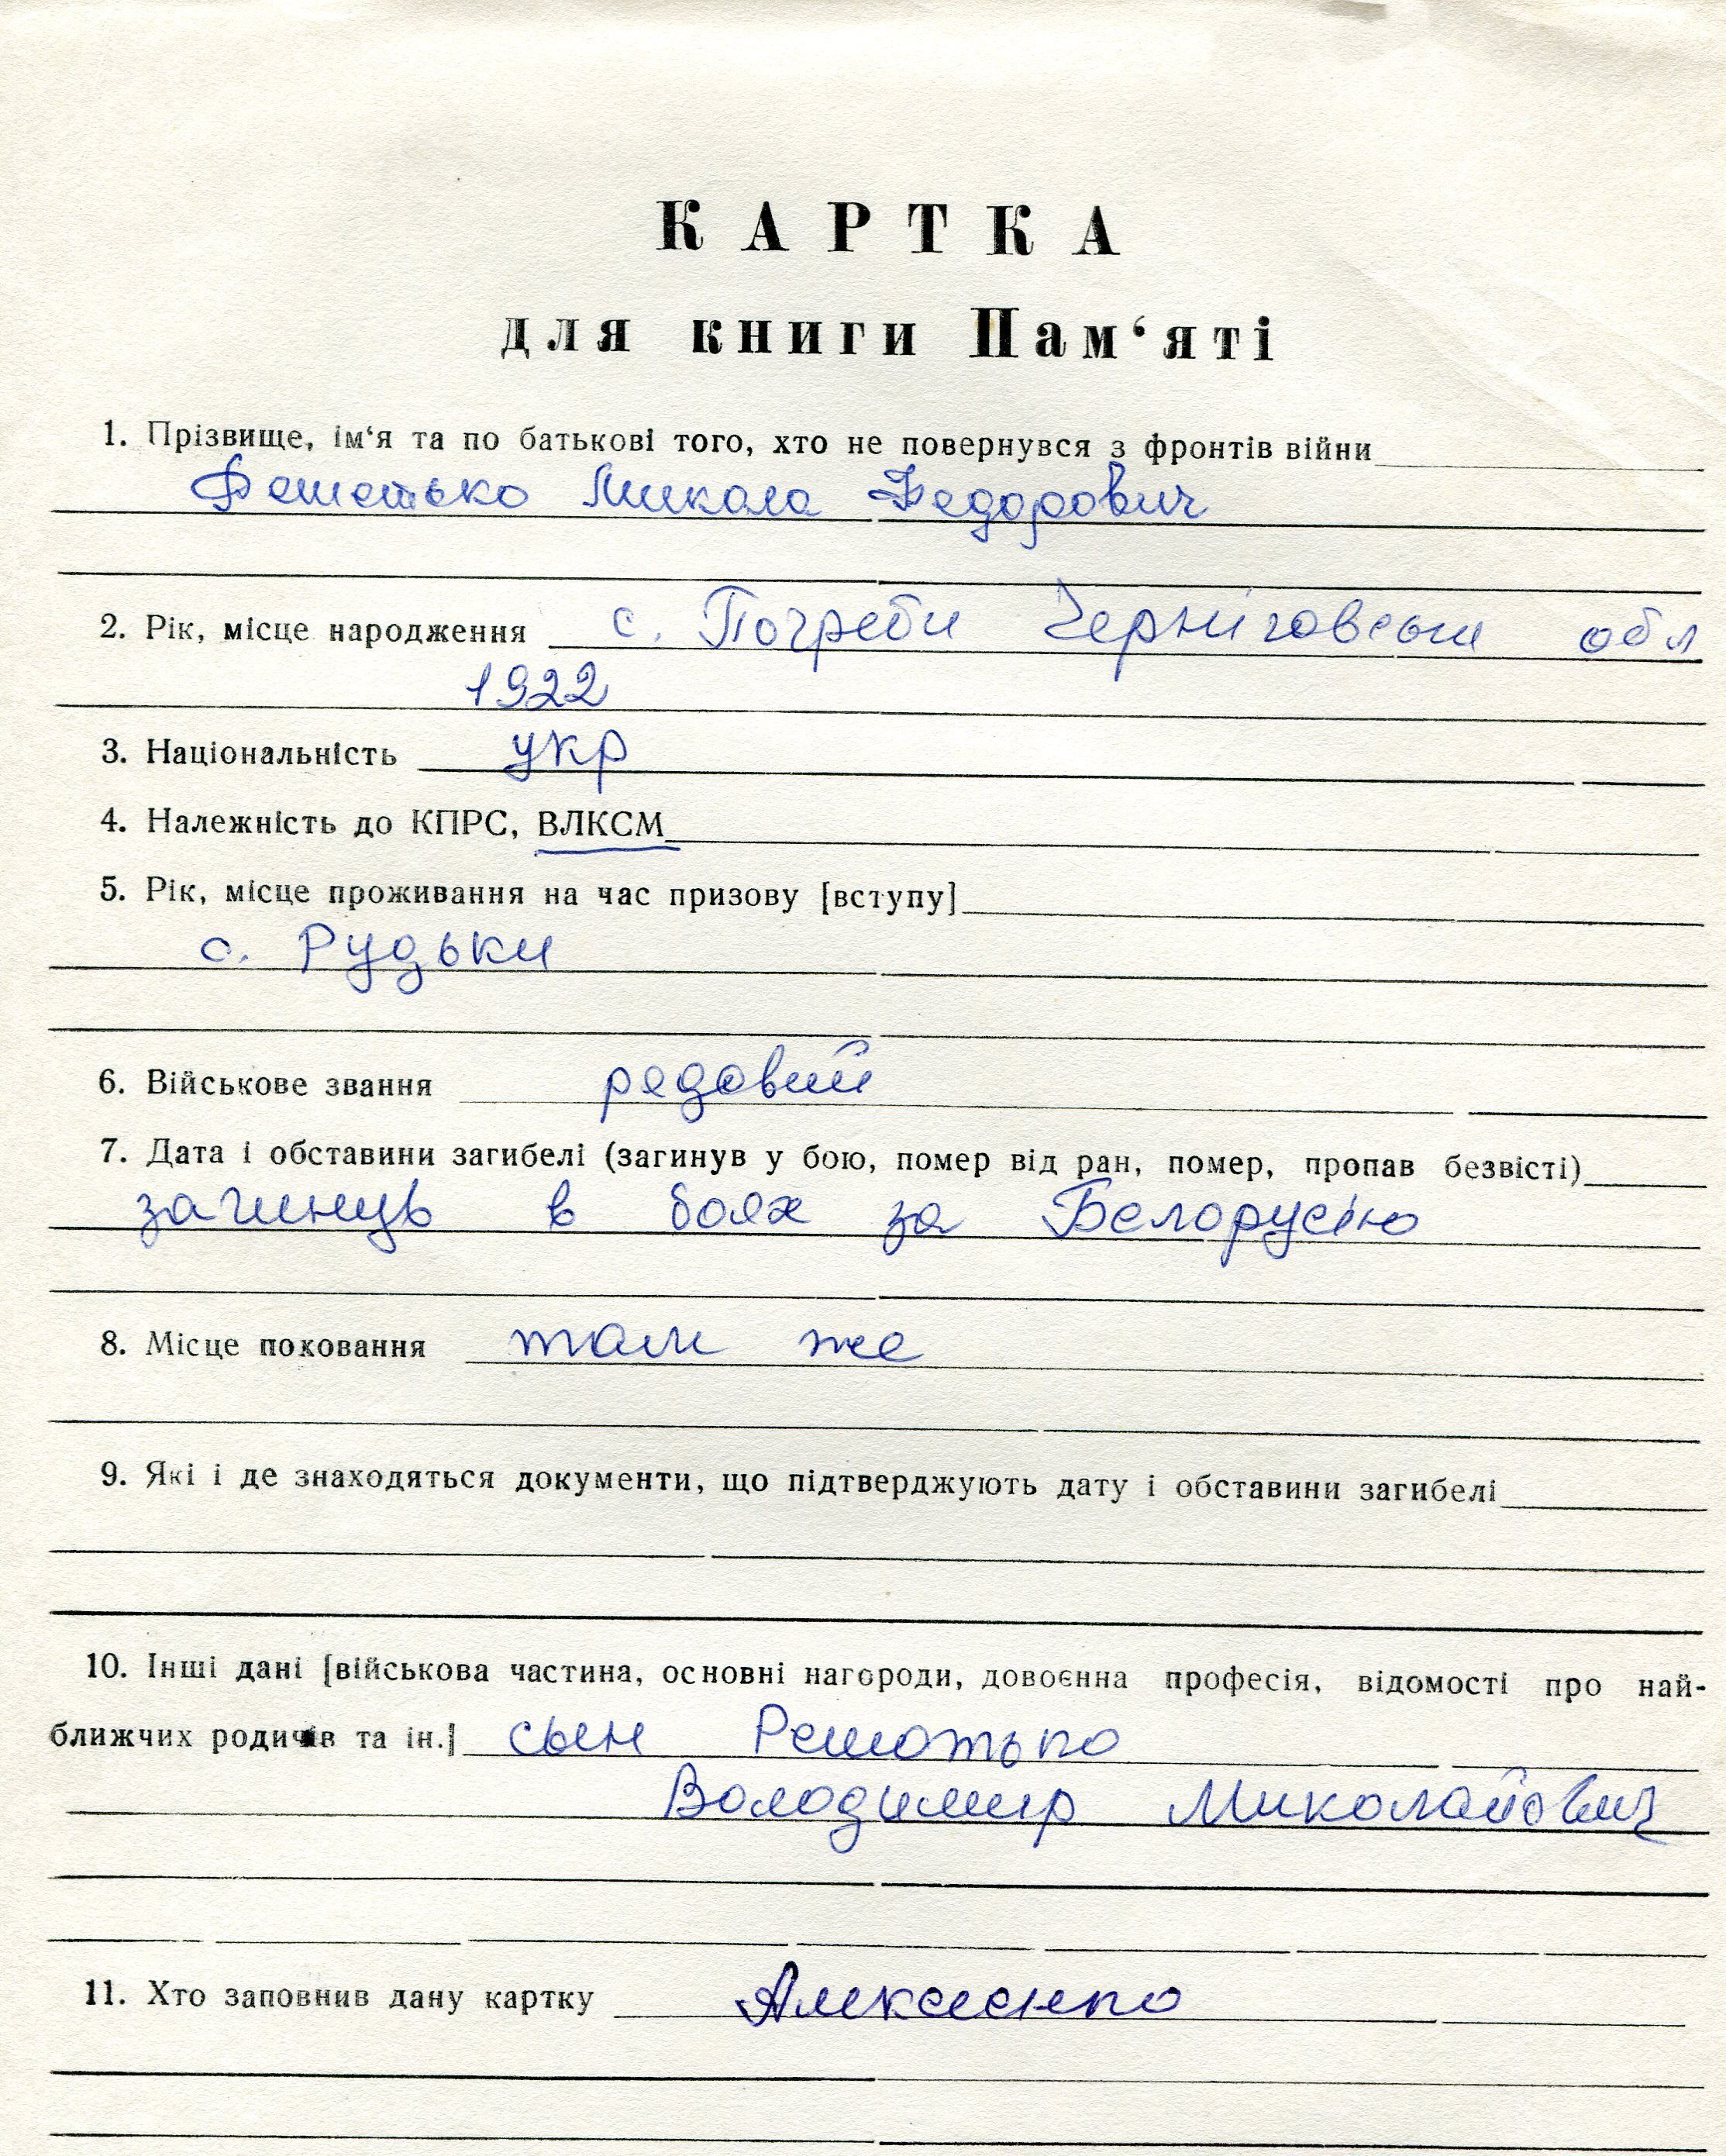 КАРТКА
для книги Пам‘яті
1. Прізвище, ім‘я та по батькові того, хто не повернувся з фронтів війни
Микола Федорович
2. Рік, місце народження с. Погреби Черніговськи обл
1922
3. Національність укр
4. Належність до КПРС, ВЛКСМ
5. Рік, місце проживання на час призову [вступу]
с. Рудьки
6. Військове звання редовий
7. Дата і обставини загибелі (загинув у бою, помер від ран, помер, пропав безвісті)
загинув в боях за Белорусію
8. Місце поховання там же
9. Які і де знаходяться документи, що підтверджують дату і обставини загибелі
10. Інші дані [військова частина, основні нагороди, довоєнна професія, відомості про най-
ближчих родичів та ін.] сын Решотько
Володимир Миколайович
11. Хто заповнив дану картку